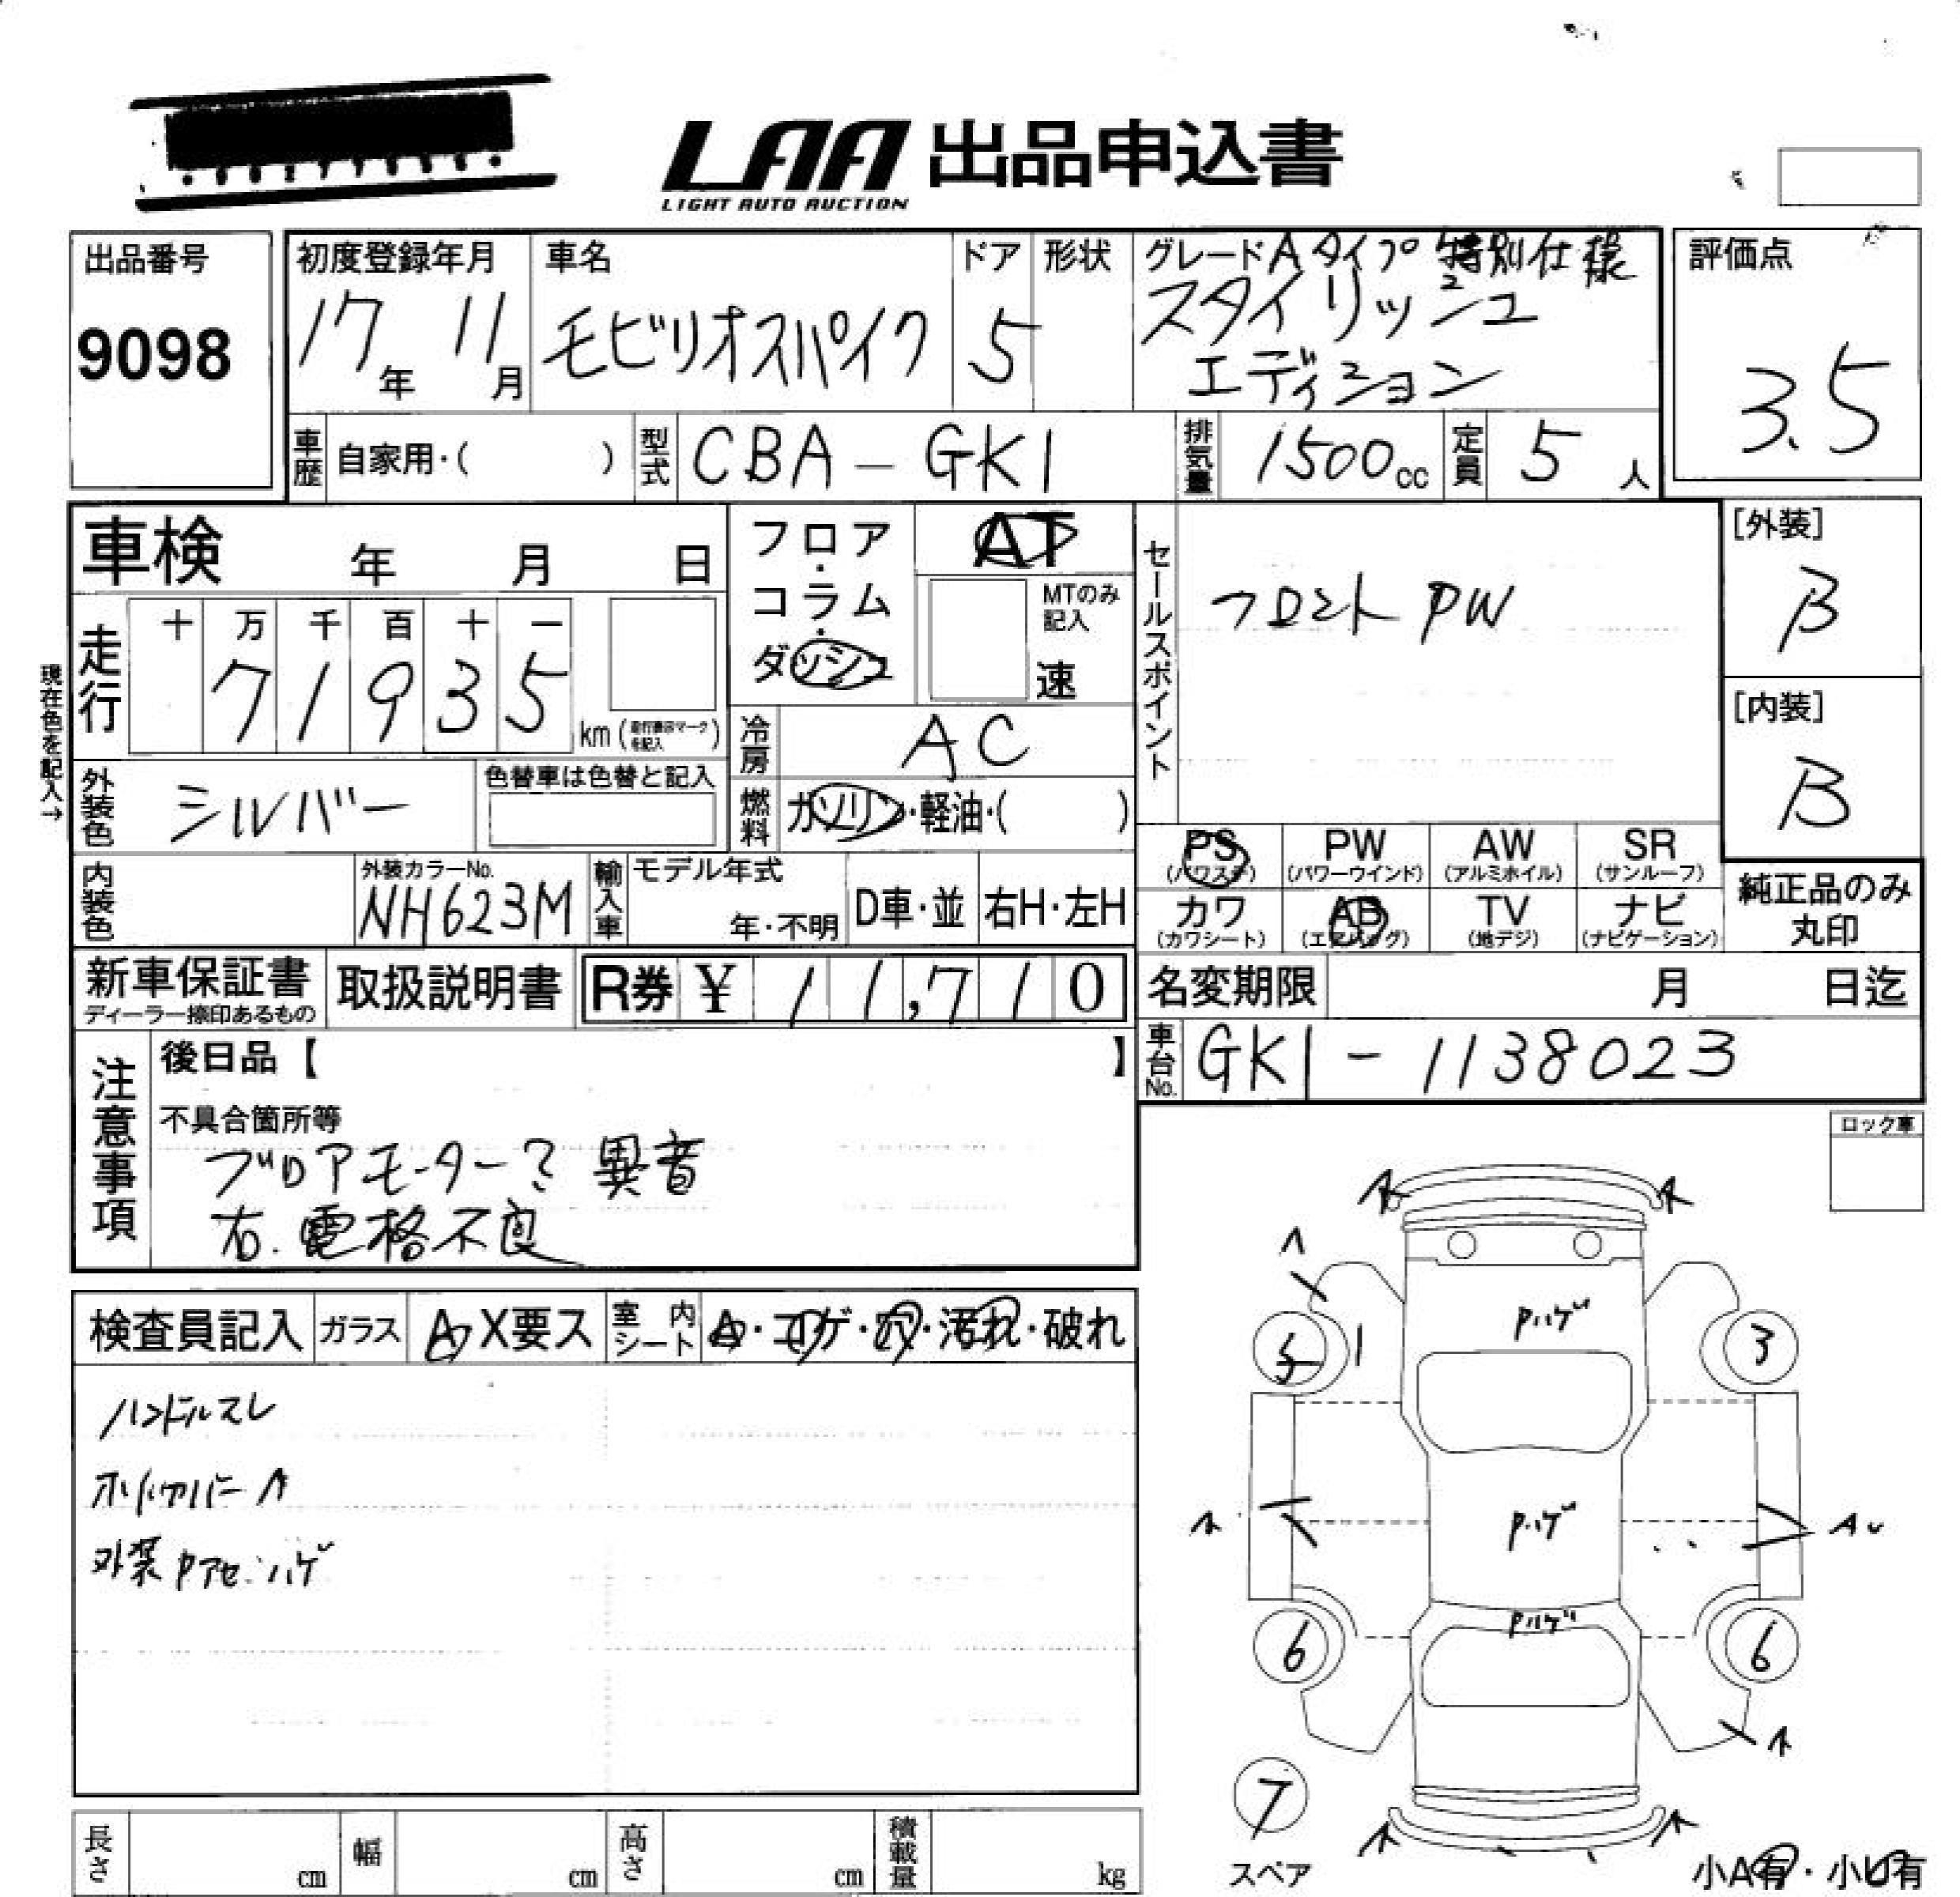 LAA 出品申込書
LIGHT AUTO AUCTION
出品番号
9098
初度登録年月
17年 11月
車名
モビリオスパイク
ドア
5
形状
グレード Aタイプ 特別仕様
スタイリッシュ
エディション
評価点
3.5
車歴 自家用・( )
型式 CBA-GK1
排気量 1500cc
定員 5人
車検 年 月 日
フロア・
コラム・
ダッシュ
AT
MTのみ
記入
速
セールスポイント
フロント PW
[外装]
B
[内装]
B
現在色を記入→
走行
十 万 千 百 十 一
7 1 9 3 5
km (走行表示マークを記入)
冷房 AC
外装色 シルバー
色替車は色替と記入
燃料 ガソリン・軽油・( )
PS
(パワステ)
PW
(パワーウインド)
AW
(アルミホイル)
SR
(サンルーフ)
内装色
外装カラーNo.
NH623M
輸入車
モデル年式
年・不明
D車・並
右H・左H
カワ
(カワシート)
AB
(エアバッグ)
TV
(地デジ)
ナビ
(ナビゲーション)
純正品のみ
丸印
新車保証書
ディーラー捺印あるもの
取扱説明書
R券 ¥ 11,710
名変期限 月 日迄
車台No. GK1-1138023
注意事項
後日品【 】
不具合箇所等
ブロアモーター? 異音
右.電格不良
ロック車
検査員記入
ガラス
A X要ス
室内シート
A・コゲ・穴・汚れ・破れ
ハンドルスレ
ホイルカバーA
外装Pアセ・ハゲ
A A
A
Pハゲ
5 1 3
A Pハゲ AU
Pハゲ
6 6
A
7
スペア
A A
小A有・小U有
長さ cm
幅 cm
高さ cm
積載量 kg